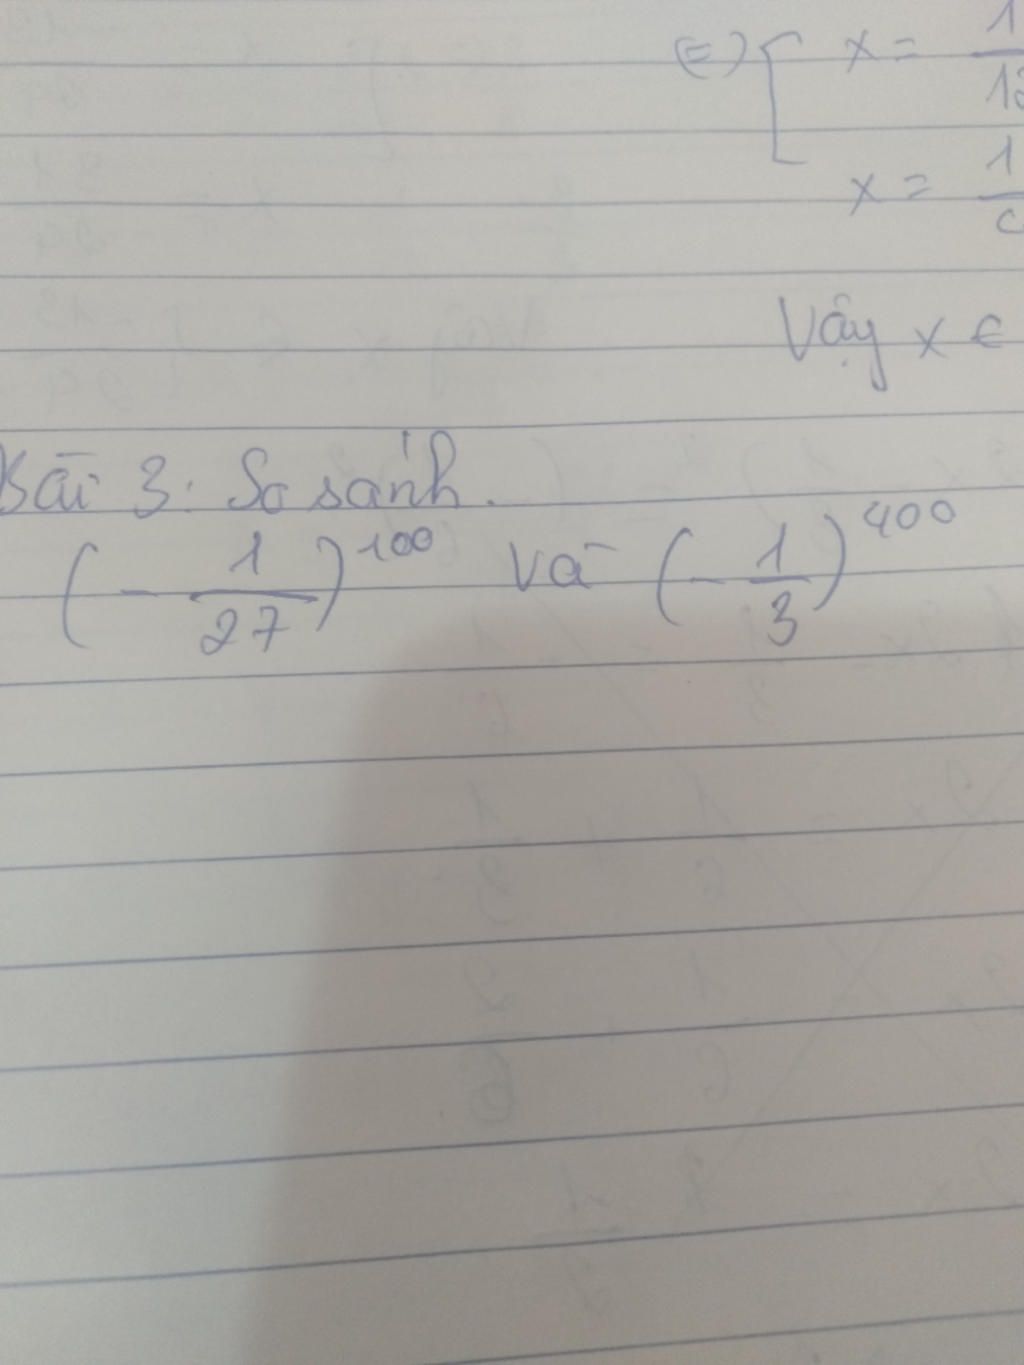 (=) [ x = 1
x = 1
Vậy x ∈
Bài 3: So sánh.
(- 1/27)^100 và (- 1/3)^400